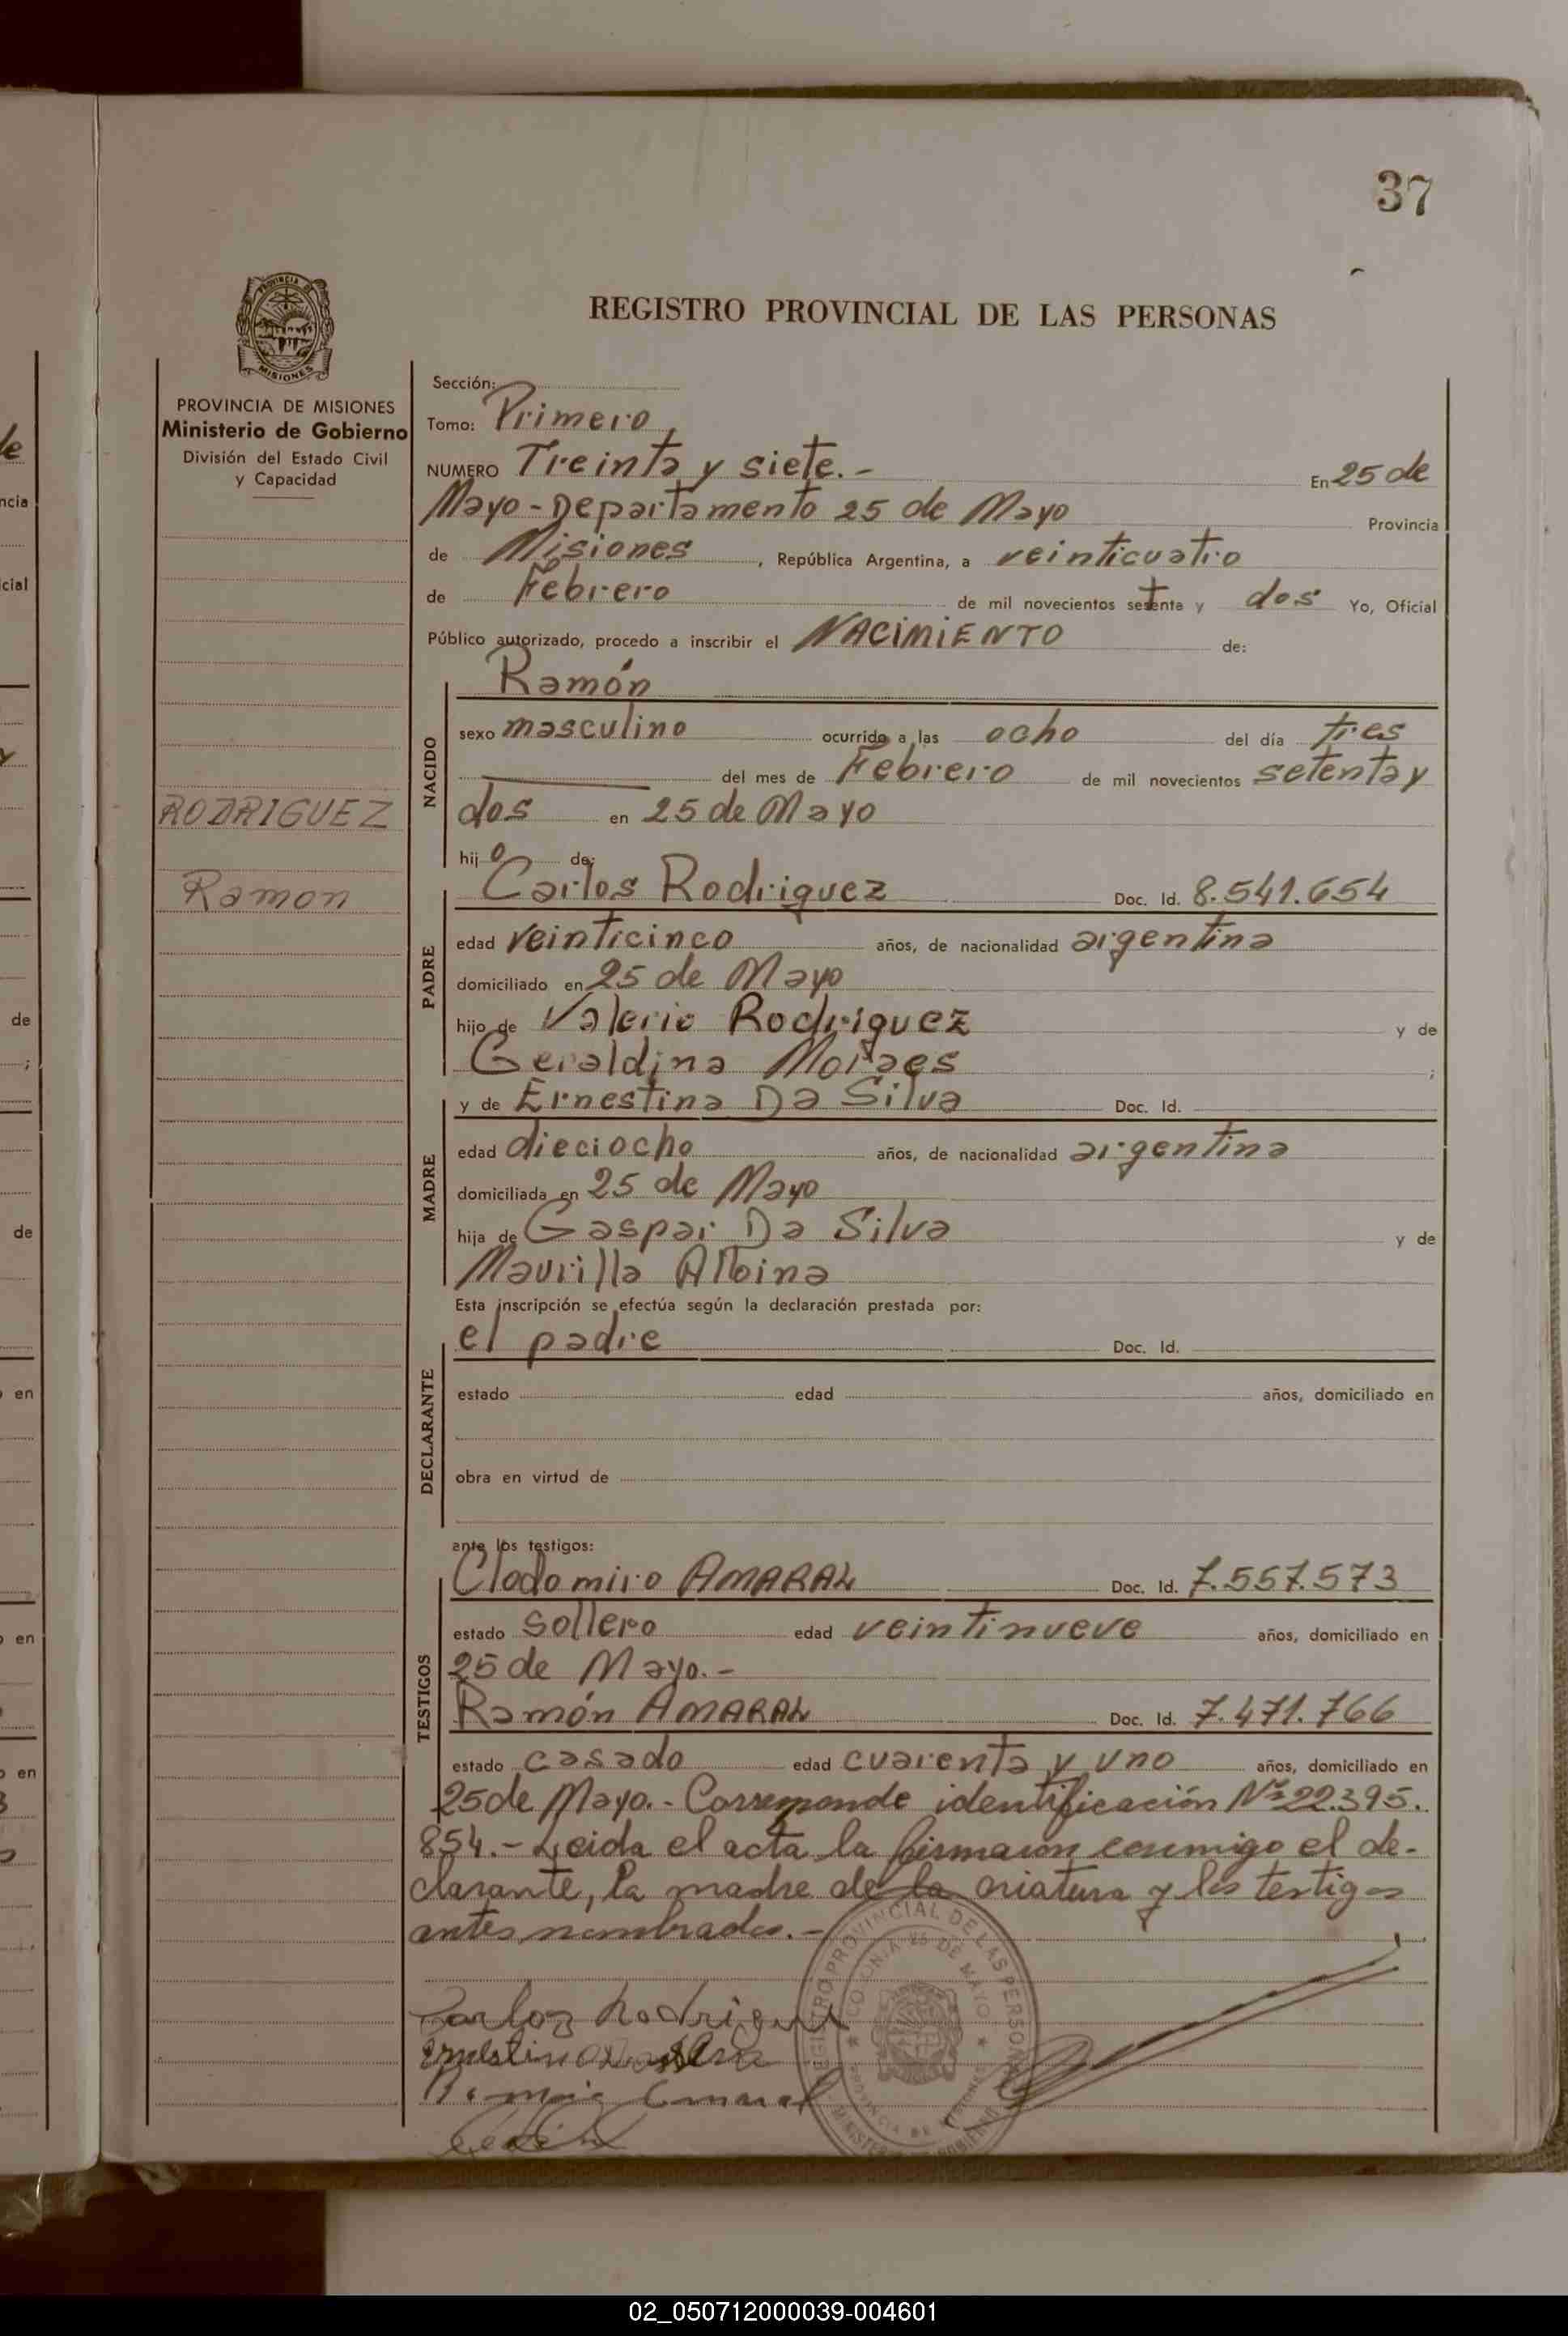 37
PROVINCIA DE MISIONES
REGISTRO PROVINCIAL DE LAS PERSONAS
PROVINCIA DE MISIONES
Ministerio de Gobierno
División del Estado Civil
y Capacidad
RODRIGUEZ
Ramon
Sección:
Tomo: Primero
NUMERO Treinta y siete.- En 25 de
Mayo - Departamento 25 de Mayo Provincia
de Misiones, República Argentina, a veinticuatro
de Febrero de mil novecientos setenta y dos Yo, Oficial
Público autorizado, procedo a inscribir el NACIMIENTO de:
NACIDO
Ramón
sexo masculino ocurrido a las ocho del día tres
del mes de Febrero de mil novecientos setenta y
dos en 25 de Mayo
hijo de:
PADRE
Carlos Rodriguez Doc. Id. 8.541.654
edad veinticinco años, de nacionalidad argentina
domiciliado en 25 de Mayo
hijo de Valerio Rodriguez y de
Geraldina Moraes ;
MADRE
y de Ernestina Da Silva Doc. Id.
edad dieciocho años, de nacionalidad argentina
domiciliada en 25 de Mayo
hija de Gaspar Da Silva y de
Maurilla Albina
Esta inscripción se efectúa según la declaración prestada por:
DECLARANTE
el padre Doc. Id.
estado edad años, domiciliado en
obra en virtud de
ante los testigos:
TESTIGOS
Clodomiro AMARAL Doc. Id. 7.557.573
estado soltero edad veintinueve años, domiciliado en
25 de Mayo.-
Ramón AMARAL Doc. Id. 7.471.766
estado casado edad cuarenta y uno años, domiciliado en
25 de Mayo.- Corresponde identificación Nº 22.395.
854.- Leida el acta la firmaron conmigo el de-
clarante, la madre de la criatura y los testigos
antes nombrados.-
Carlos Rodriguez
REGISTRO PROVINCIAL DE LAS PERSONAS
COLONIA 25 DE MAYO
PROVINCIA DE MISIONES
MINISTERIO DE GOBIERNO
de
ncia
cial
de
;
de
en
en
en
02_050712000039-004601